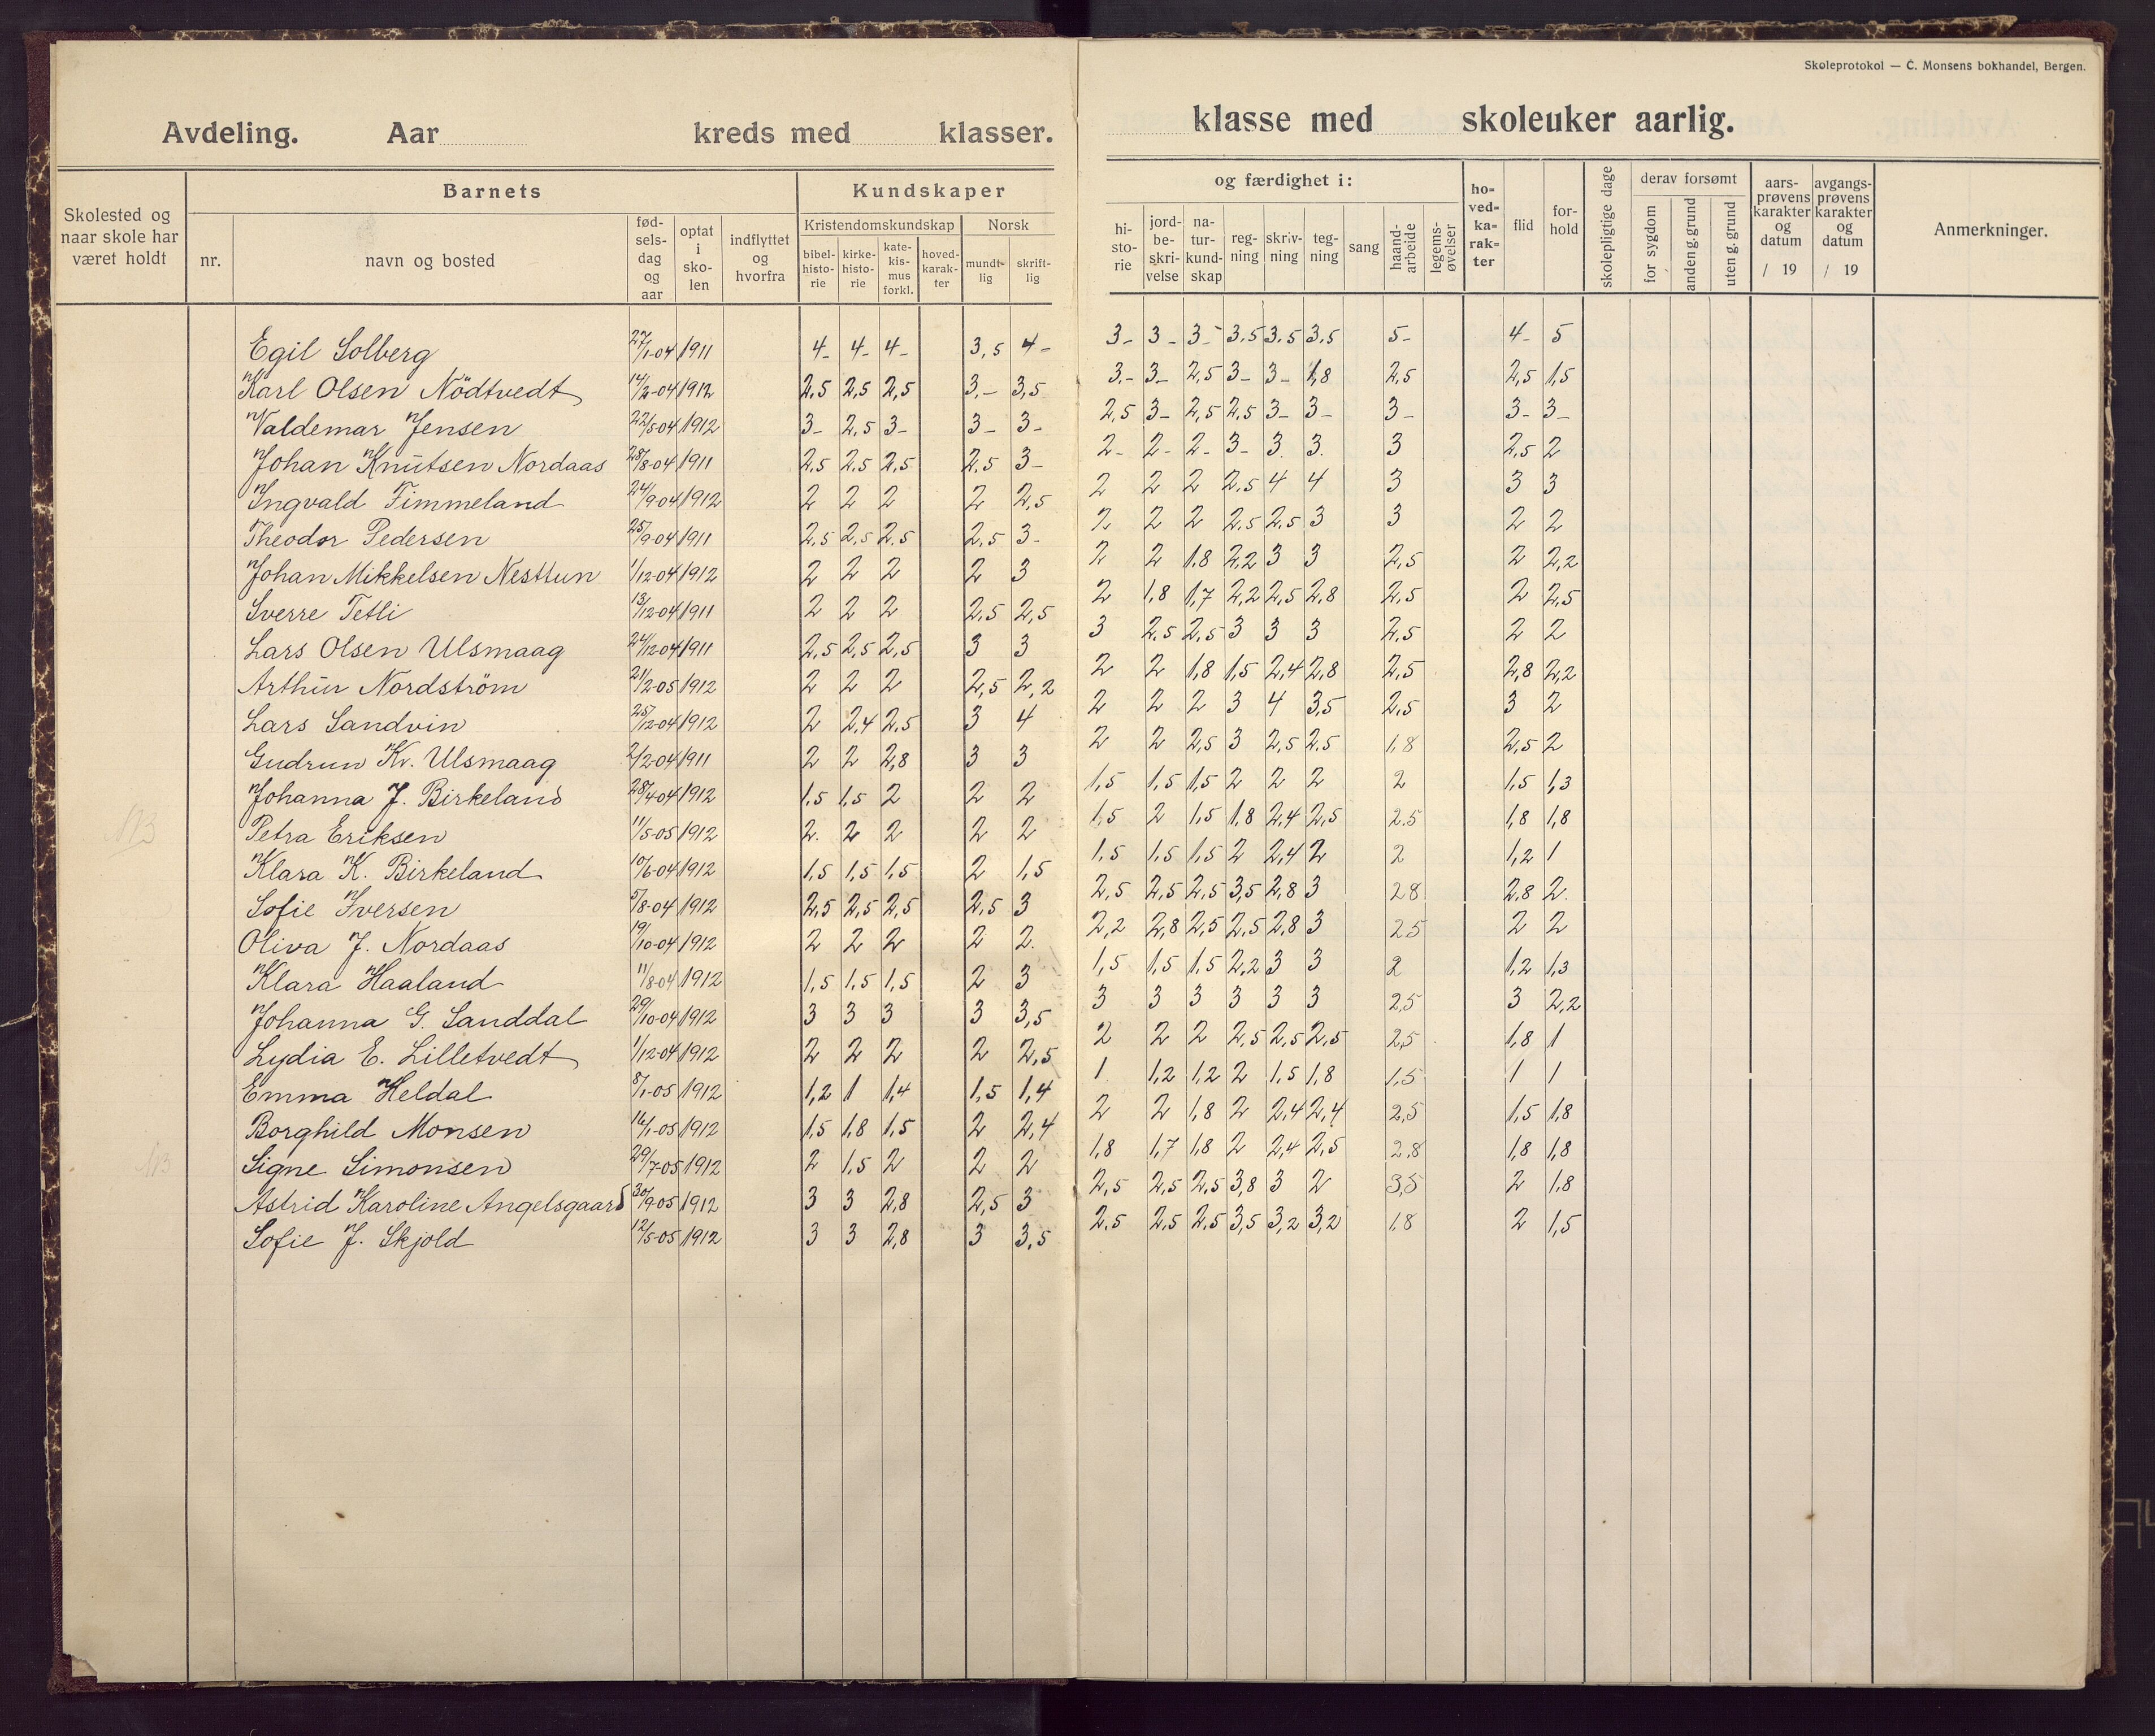 Skoleprotokol — C. Monsens bokhandel, Bergen.
Avdeling. Aar kreds med klasser. klasse med skoleuker aarlig.
Skolested og naar skole har været holdt
Barnets
nr. navn og bosted fød-sels-dag og aar optat i sko-len indflyttet og hvorfra
Kundskaper og færdighet i:
Kristendomskundskap Norsk
bibel-histo-rie kirke-histo-rie kate-kis-mus forkl. hoved-karak-ter mundt-lig skrift-lig
hi-sto-rie jord-be-skri-velse na-tur-kund-skap reg-ning skriv-ning teg-ning sang haand-arbeide legems-øvelser ho-ved-ka-rak-ter flid for-hold
skolepligtige dage derav forsømt for sygdom anden g. grund uten g. grund
aars-prøvens karakter og datum / 19 avgangs-prøvens karakter og datum / 19 Anmerkninger.
Egil Solberg 27/1-04 1911 4- 4- 4- 3,5 4- 3- 3- 3- 3.5 3.5 3,5 5- 4- 5
Karl Olsen Nödtvedt 14/2-04 1912 2,5 2,5 2,5 3,- 3,5 3,- 3- 2,5 3- 3- 1,8 2,5 2,5 1,5
Valdemar Jensen 22/5-04 1912 3- 2,5 3- 3- 3- 2,5 3- 2,5 2,5 3- 3- 3- 3- 3-
Johan Knutsen Nordaas 28/8-04 1911 2,5 2,5 2,5 2,5 3- 2- 2- 2- 3- 3. 3. 3 2,5 2
Ingvald Fimmeland 24/9-04 1912 2 2 2 2 2,5 2 2 2 2,5 4 4 3 3 3
Theodor Pedersen 25/9-04 1911 2,5 2,5 2,5 2,5 3- 2 2 2 2,5 2,5 3 3 2 2
Johan Mikkelsen Nesttun 1/12-04 1912 2 2 2 2 3 2 2 1,8 2,2 3 3 2,5 2 2,2
Sverre Tetli 13/12-04 1911 2 2 2 2,5 2,5 2 1,8 1,7 2,2 2,5 2,8 2,5 2 2,5
Lars Olsen Ulsmaag 24/12-04 1911 2,5 2,5 2,5 3 3 3 2,5 2,5 3 3 3 2,5 2 2
Arthur Nordström 21/2-05 1912 2 2 2 2,5 2,2 2 2 1,8 1,5 2,4 2,8 2,5 2,8 2,2
Lars Sandvin 25/12-04 1912 2 2,4 2,5 3 4 2 2 2 3 4 3,5 2,5 3 2
Gudrun Kr. Ulsmaag 2/2-04 1911 2 2 2,8 3 3 2 2 2,5 3 2,5 2,5 1,8 2,5 2
Johanna J. Birkeland 28/4-04 1912 1,5 1,5 2 2 2 1,5 1,5 1,5 2 2 2 2 1,5 1,3
Petra Eriksen 11/5-05 1912 2. 2 2 2 2 1,5 2 1,5 1,8 2,4 2,5 2.5 1,8 1,8
Klara K. Birkeland 10/6-04 1912 1,5 1,5 1,5 2 1,5 1,5 1,5 1,5 2 2,4 2 2 1,2 1
Sofie Iversen 5/8-04 1912 2,5 2,5 2,5 2,5 3 2,5 2,5 2,5 3,5 2,8 3 2 8 2,8 2.
Oliva J. Nordaas 19/10-04 1912 2 2 2 2 2. 2,2 2,8 2,5 2,5 2,8 3 2 5 2 2
Klara Haaland 11/8-04 1912 1,5 1,5 1,5 2 3 1,5 1,5 1,5 2,2 3 3 2 1,2 1,3
Johanna G. Sanddal 29/10-04 1912 3 3 3 3 3,5 3 3 3 3 3 3 2,5 3 2,2
Lydia E. Lilletvedt 1/12-04 1912 2 2 2 2 2,5 2 2 2 2,5 2,5 2,5 2,5 1,8 1
Emma Heldal 8/1-05 1912 1,2 1 1,4 1,5 1,4 1 1,2 1,2 2 1,5 1,8 1,5 1 1
Borghild Monsen 16/1-05 1912 1,5 1,8 1,5 2 2,4 2 2 1,8 2 2,4 2,4 2,5 1,5 1,8
Signe Simonsen 29/7-05 1912 2 1,5 2 2 2 1,8 1,7 1,8 2 2,4 2,5 2.8 1,8 1,8
Astrid Karoline Angelsgaard 30/9-05 1912 3 3 2,8 2,5 3 2,5 2,5 2,5 3,8 3 2 3,5 2 1,8
Sofie J. Skjold 12/5-05 1912 3 3 2,8 3 3,5 2,5 2,5 2,5 3,5 3,2 3,2 1,8 2 1,5